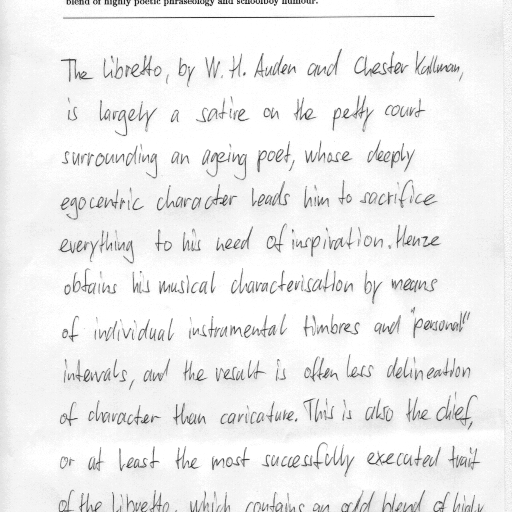 blend of highly poetic phraseology and schoolboy humour.
The libretto, by W. H. Auden and Chester Kallman,
is largely a satire on the petty court
surrounding an ageing poet, whose deeply
egocentric character leads him to sacrifice
everything to his need of inspiration. Henze
obtains his musical characterisation by means
of individual instrumental timbres and "personal"
intervals, and the result is often less delineation
of character than caricature. This is also the chief,
or at least the most successfully executed trait
of the libretto, which contains an odd blend of highly